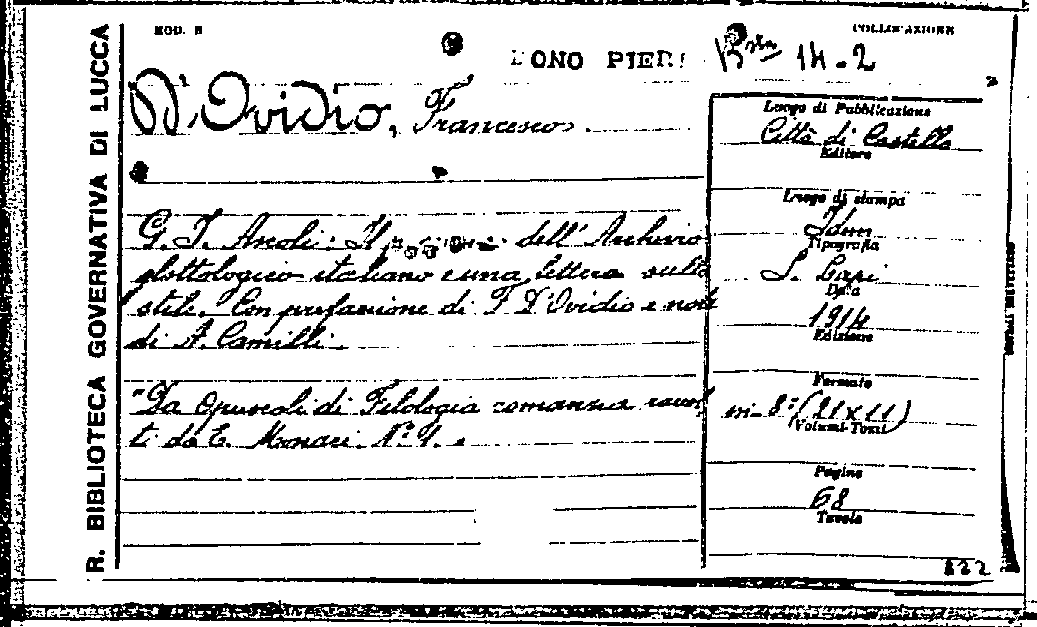 R. BIBLIOTECA GOVERNATIVA DI LUCCA
MOD. B
DONO PIERI
14-2
COLLOCAZIONE
D'Ovidio, Francesco
G. I. Ascoli: Il dell'Archivio
glottologico italiano e una lettera sullo
stile. Con prefazione di F. D'Ovidio e note
di A. Camilli.
"Da Opuscoli di Filologia romanza raccol
ti da E. Monaci. N.º 4.
Luogo di Pubblicazione
Città di Castello
Editore
Luogo di stampa
Idem
Tipografia
S. Lapi
Data
1914
Edizione
Formato
in-8º (21x11)
Volumi-Tomi
Pagine
68
Tavole